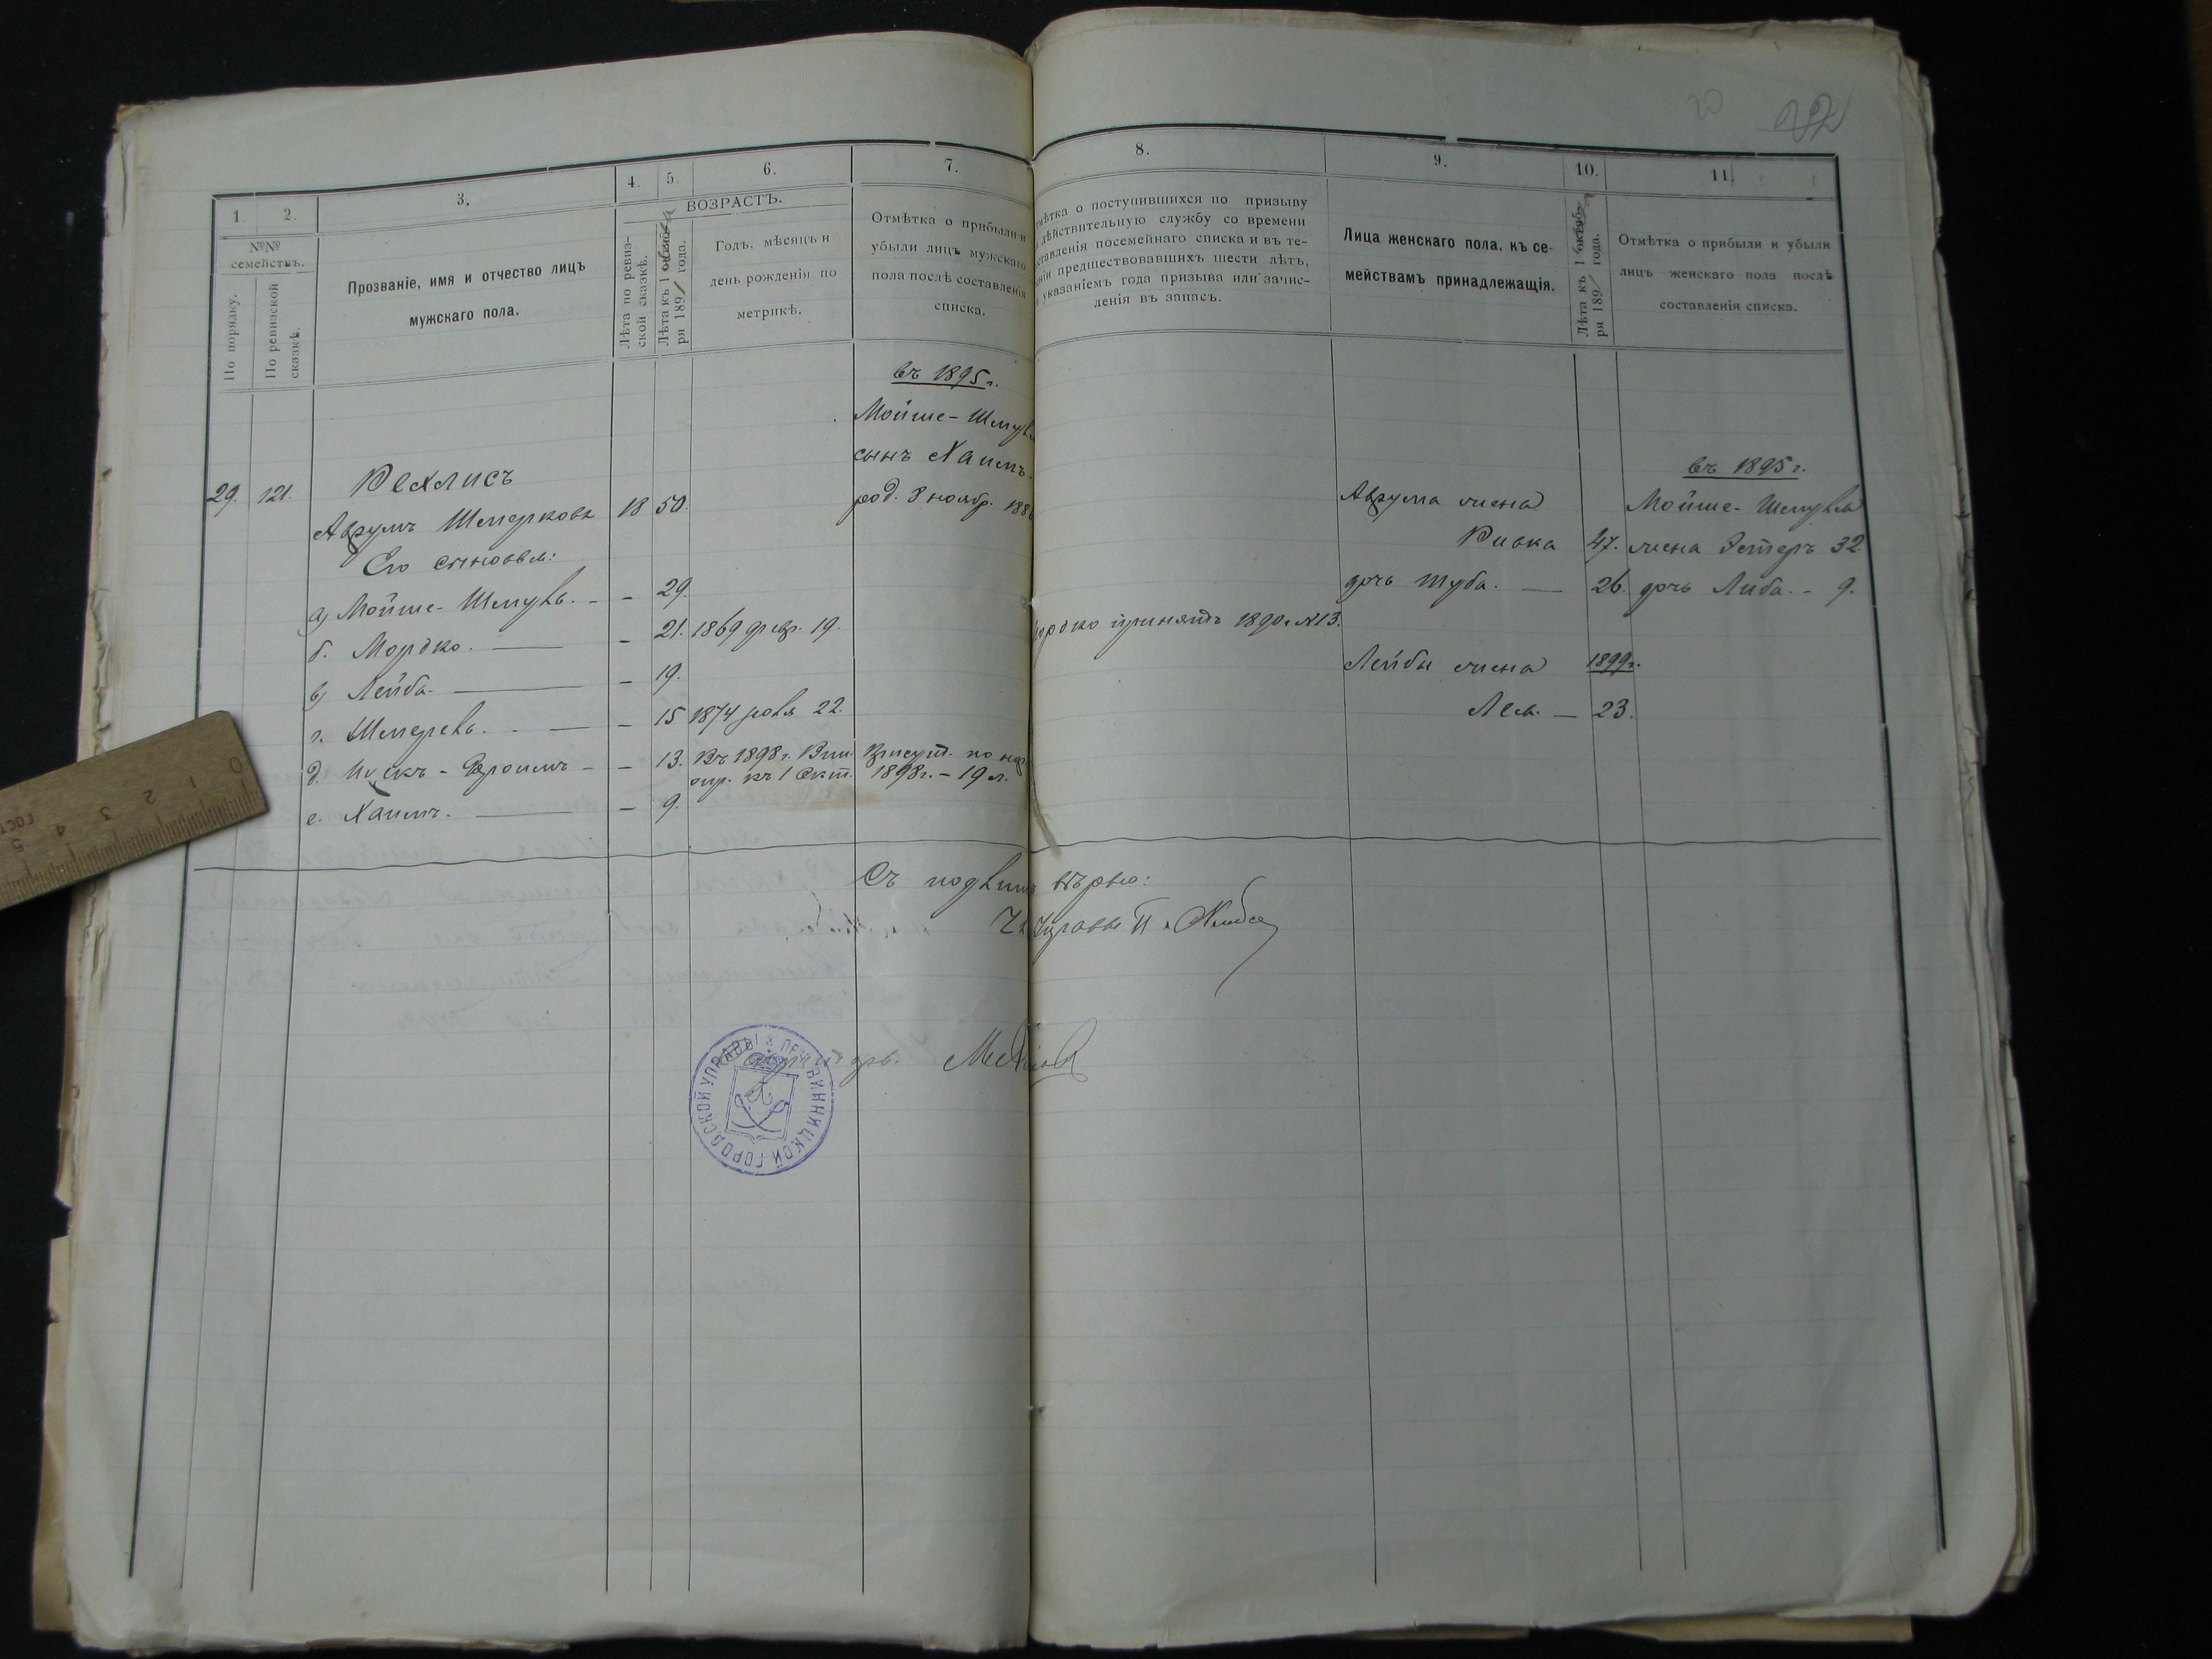 22
1.
2.
3.
4.
5.
6.
7.
8.
9.
10.
11.
№№ семействъ.
По порядку.
По ревизской сказкѣ.
Прозваніе, имя и отчество лицъ
мужскаго пола.
ВОЗРАСТЪ.
Лѣта по ревиз-
ской сказкѣ.
Лѣта къ 1
ря 189 года.
Годъ, мѣсяцъ и
день рожденія по
метрикѣ.
Отмѣтка о прибыли и
убыли лицъ мужскаго
пола послѣ составленія
списка.
о поступившихся по призыву
дѣйствительную службу со времени
ставленія посемейнаго списка и въ те-
предшествовавшихъ шести лѣтъ,
указаніемъ года призыва или зачис-
ленія въ запасъ.
Лица женскаго пола, къ се-
мействамъ принадлежащія.
Лѣта къ 1 октяб-
ря 189 года.
Отмѣтка о прибыли и убыли
лицъ женскаго пола послѣ
составленія списка.
въ 1895 г.
Мойше-Шмуль
сынъ Хаимъ
род. 8 ноябр. 188
29. 121. Рехлисъ
Аврумъ Шмерковъ 18 50.
Его сыновья:
а) Мойше-Шмуль. - - 29.
б. Мордко. - 21. 1869 февр. 19.
в) Лейба. - 19.
г. Шмерель. - 15 1874 іюля 22.
д. Ицекъ-Фроимъ - - 13. Въ 1898 г.
къ 1 Окт. 1898 г. - 19 л.
е. Хаимъ. - 9.
принятъ 1890 г. №13.
Аврума жена
Ривка 47.
дочь Туба. - 26.
Лейбы жена 1899 г.
Лея. - 23.
въ 1895 г.
Мойше-Шмуля
жена Эстеръ 32
дочь Либа. - 9.
Съ подлин вѣрно:
Управы
ВИННИЦКОЙ ГОРОДСКОЙ УПРАВЫ
0 1 2 3 4 5
ГОСТ